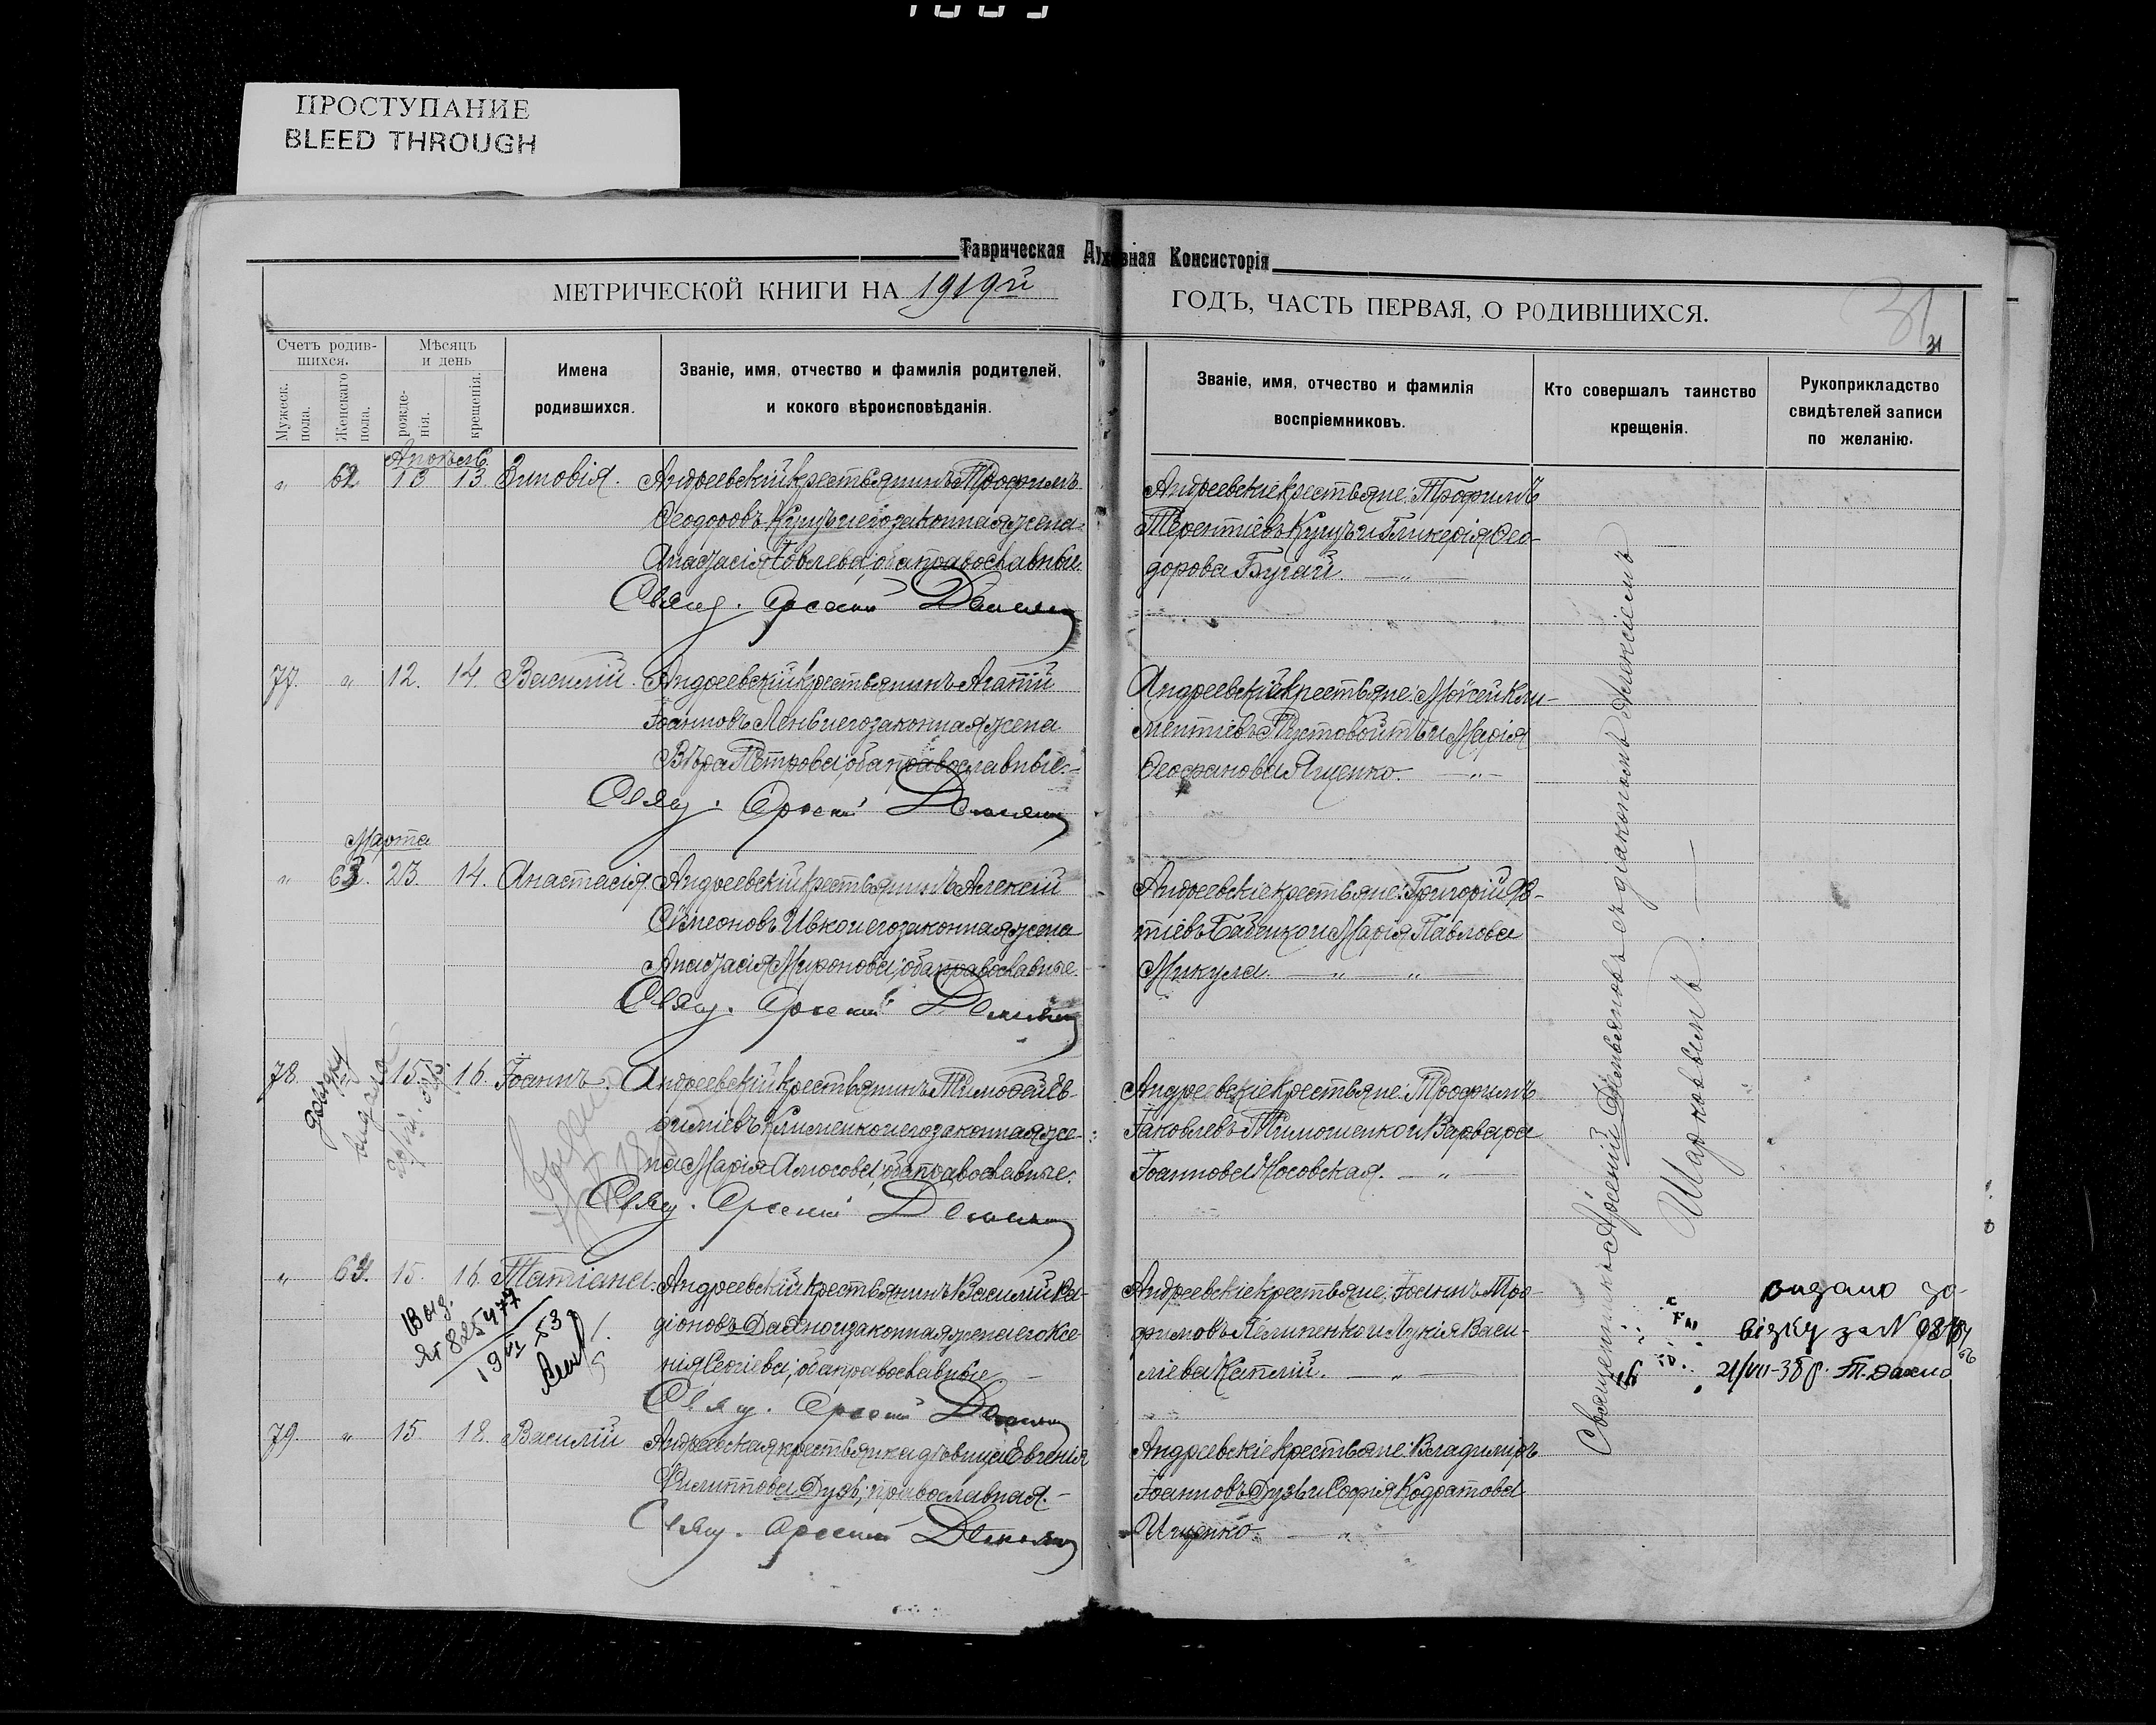 ПРОСТУПАНИЕ
BLEED THROUGH
Таврическая Духовная Консисторія
МЕТРИЧЕСКОЙ КНИГИ НА 1919й
ГОДЪ, ЧАСТЬ ПЕРВАЯ, О РОДИВШИХСЯ.
31
31
Счетъ родив-
шихся.
Мѣсяцъ
и день
Мужеск.
пола.
Женскаго
пола.
рожде-
нія.
крещенія.
Имена
родившихся.
Званіе, имя, отчество и фамилія родителей,
и кокого вѣроисповѣданія.
Званіе, имя, отчество и фамилія
воспріемниковъ.
Кто совершалъ таинство
крещенія.
Рукоприкладство
свидѣтелей записи
по желанію.
Апрѣль
" 62 13 13 Зиновія. Андреевскій крестьянинъ Трофимъ
Ѳеодоровъ Куцъ и его законная жена
Анастасія Іовлева; оба православные.
Свящ. Арсеній
Андреевскіе крестьяне: Трофимъ
Терентіевъ Куцъ и Гликерія Ѳео-
дорова Бугай. — " —
77. " 12. 14. Василій. Андреевскій крестьянинъ Агапій
Іоанновъ Лень и его законная жена
Вѣра Петрова; оба православные.
Свящ. Арсеній
Андреевскій крестьяне: Моѵсей Кли-
ментіевъ Пустовойтъ и Марія
Ѳеофанова Ященко. — " —
Марта
" 63. 23. 14. Анастасія. Андреевскій крестьянинъ Алексій
Сѵмеоновъ Ивко и его законная жена
Анастасія Миронова; оба православные.
Свящ. Арсеній
Андреевскіе крестьяне: Григорій
тіевъ Бабенко и Марія Павлова
Микула. — " "
78. 15. 16. Іоаннъ. Андреевскій крестьянинъ Тимоѳей Ев-
ѳиміевъ Клименко и его законная же-
на Марія Амосова; оба православные.
Свящ. Арсеній
Андреевскіе крестьяне: Трофимъ
Іаковлевъ Тимошенко и Варвара
Іоаннова Носовская. — " —
" 64. 15. 16. Татіана. Андреевскій крестьянинъ Василій Ра-
діоновъ Даяно и законная жена его Ксе-
нія Сергіева; оба православные —
Свящ. Арсеній
Андреевскіе крестьяне: Іоаннъ Тро-
фимовъ Пилипенко и Лукія Васи-
ліева Каплій. — " —
Выд.
19 VI 53
видано до-
відку за N
21/VII-38 р. Т. Даяно
79. " 15. 18. Василій Андреевская крестьянка дѣвица Евгенія
Филиппова Дузь; православная. —
Свящ. Арсеній
Андреевскіе крестьяне: Владиміръ
Іоанновъ Дузь и Софія Кодратова
Ищенко. — "
Священникъ Арсеній Демьяновъ съ діакономъ Алексіемъ
Шарковымъ. —